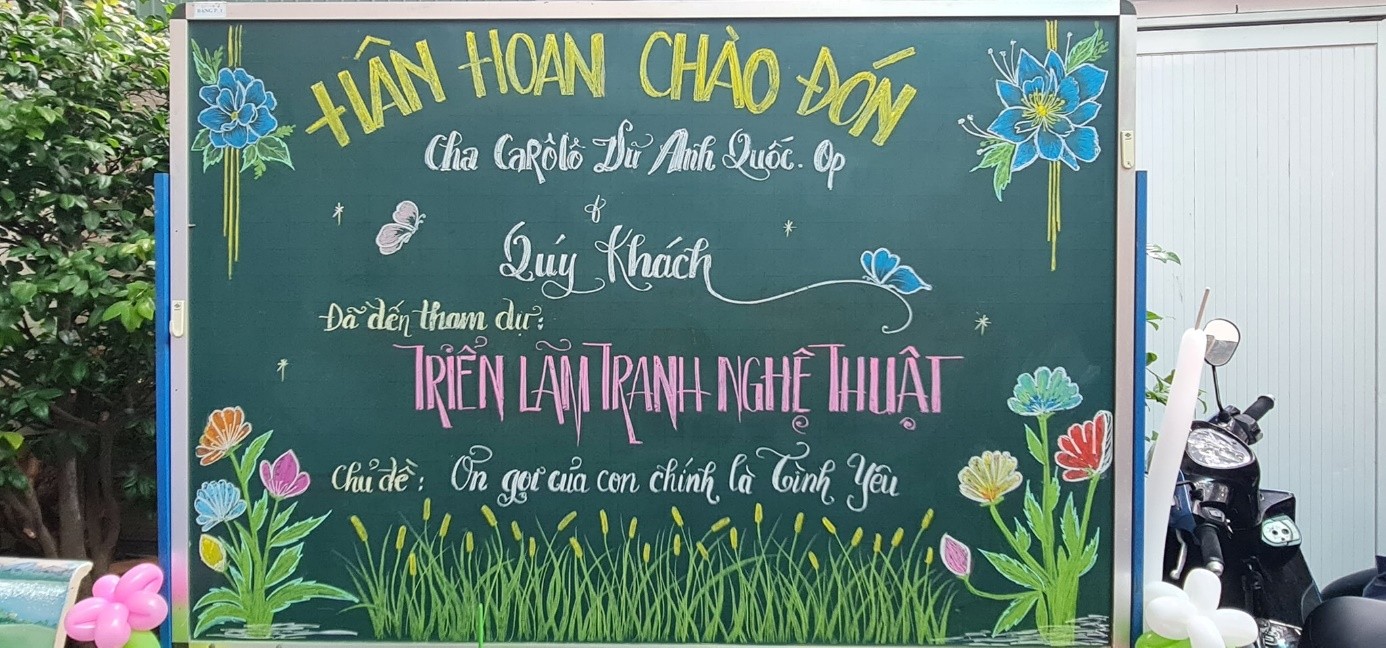 HÂN HOAN CHÀO ĐÓN
Cha Carôlô Vũ Anh Quốc. Op
&
Quý Khách
Đã đến tham dự:
TRIỂN LÃM TRANH NGHỆ THUẬT
Chủ đề: Ơn gọi của con chính là Tình Yêu